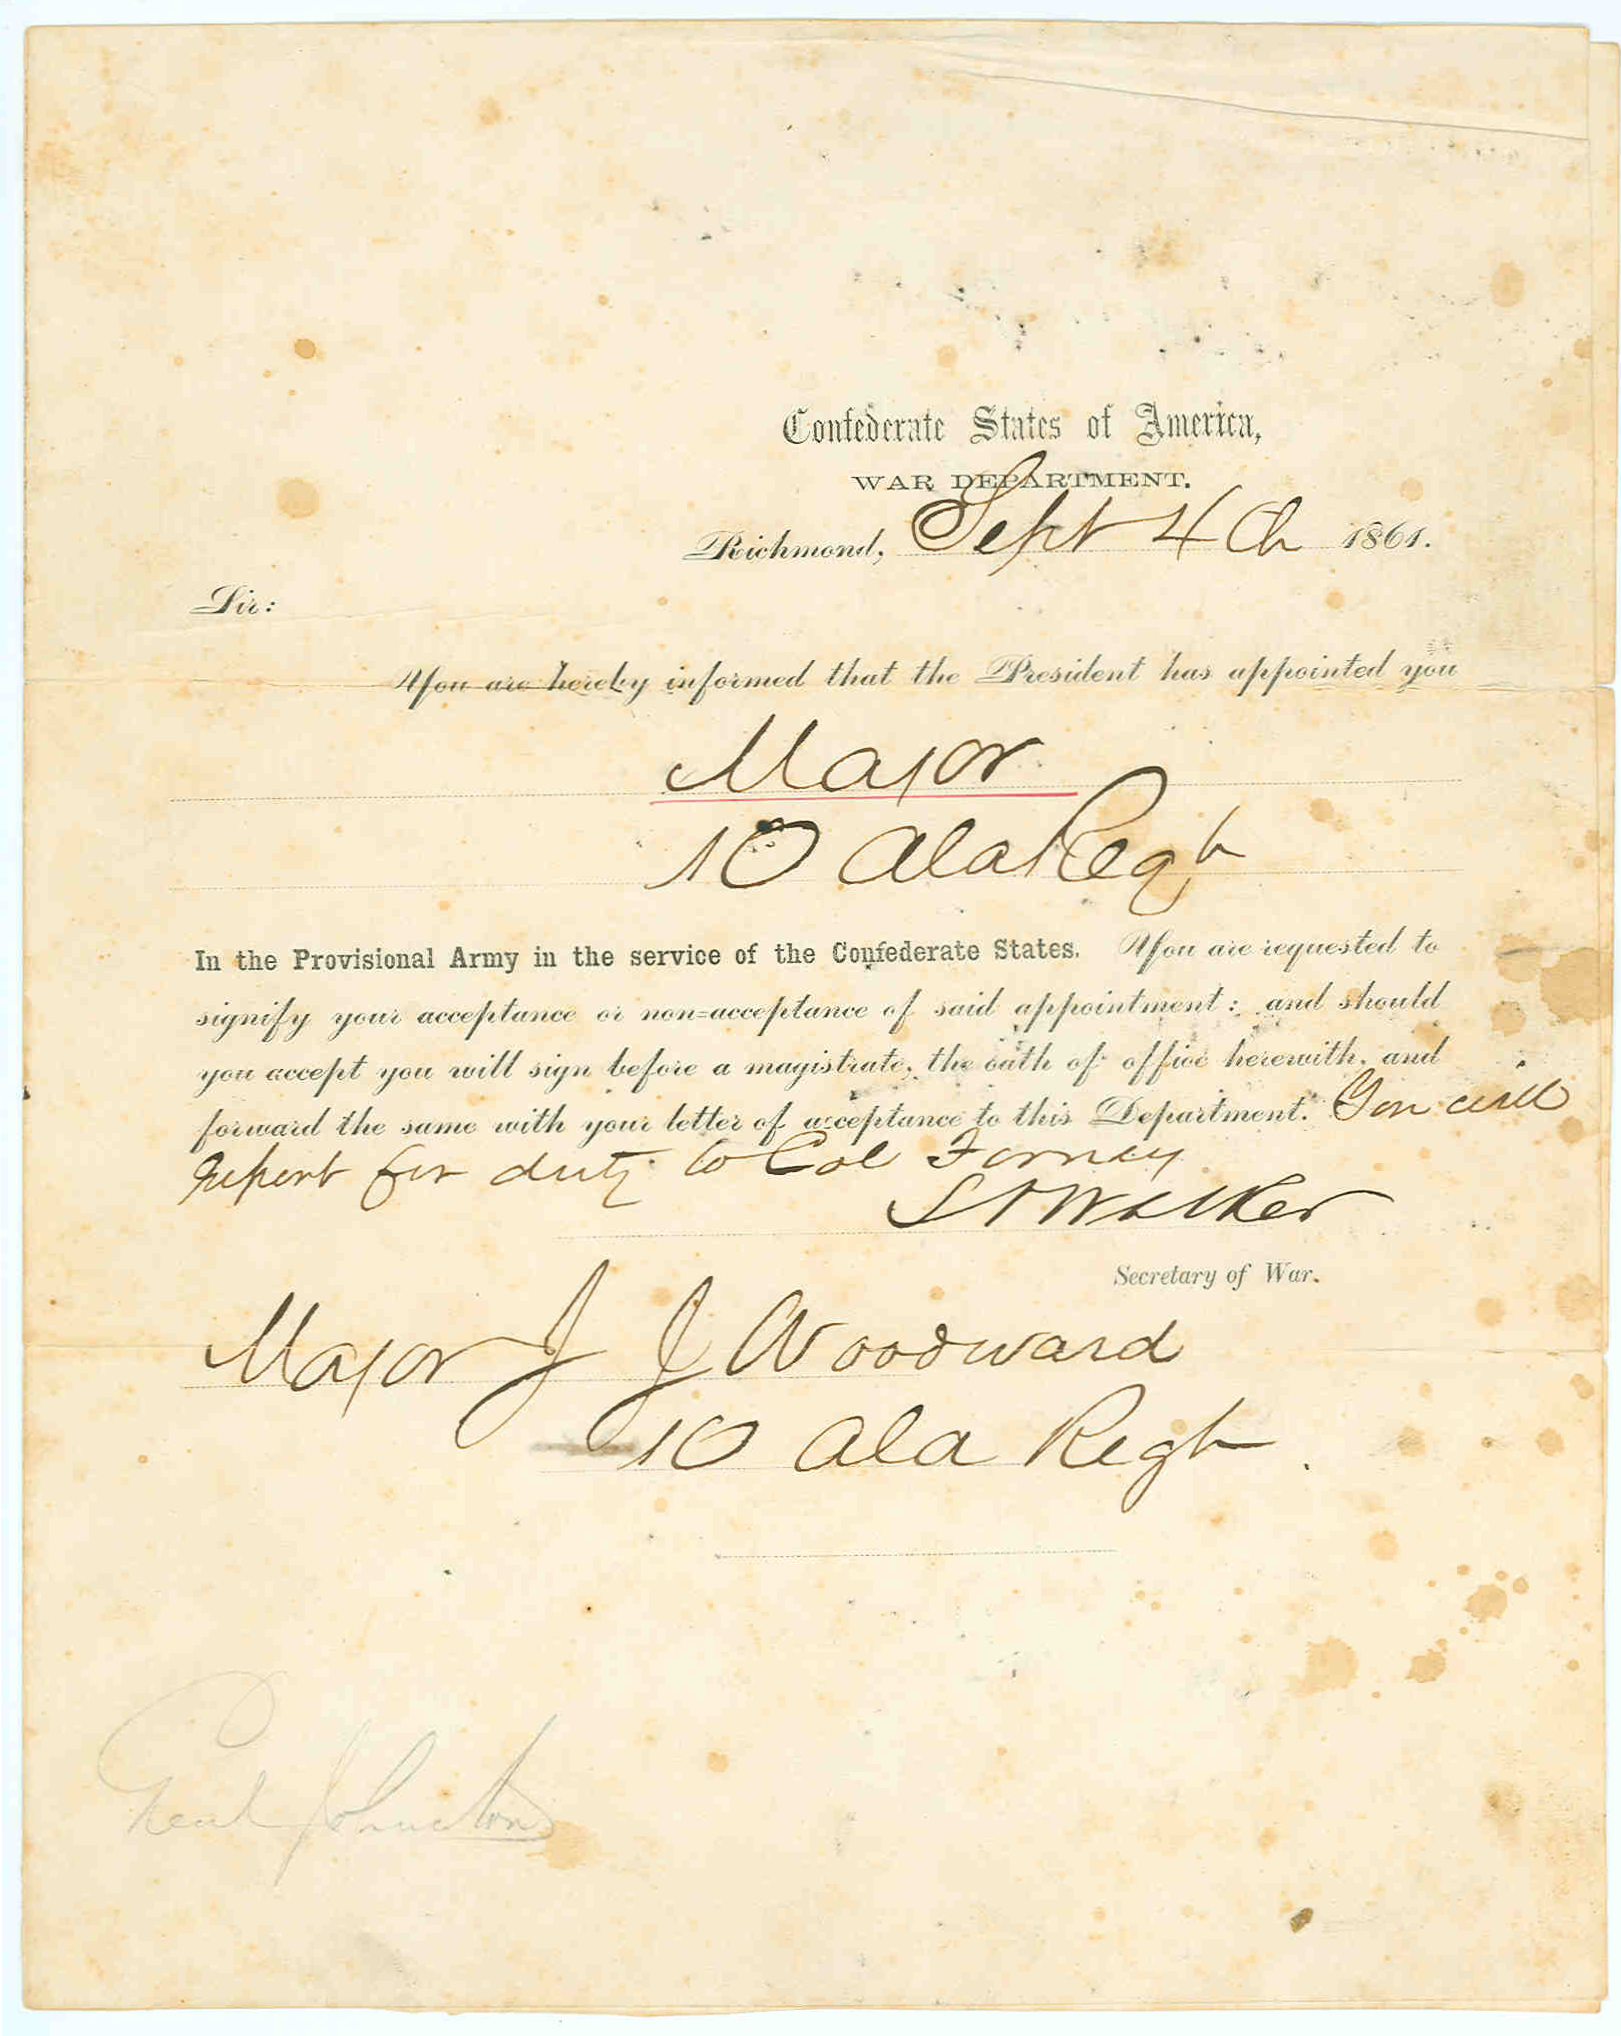 Confederate States of America,
WAR DEPARTMENT.
Richmond, Sept 4th 1861.
Sir:
You are hereby informed that the President has appointed you
Major
10 Ala Regt
In the Provisional Army in the service of the Confederate States. You are requested to
signify your acceptance or non-acceptance of said appointment: and should
you accept you will sign before a magistrate, the oath of office herewith, and
forward the same with your letter of acceptance to this Department. You will
report for duty to Col Forney
L P Walker
Secretary of War.
Major J J Woodward
10 Ala Regt
Genl Johnston